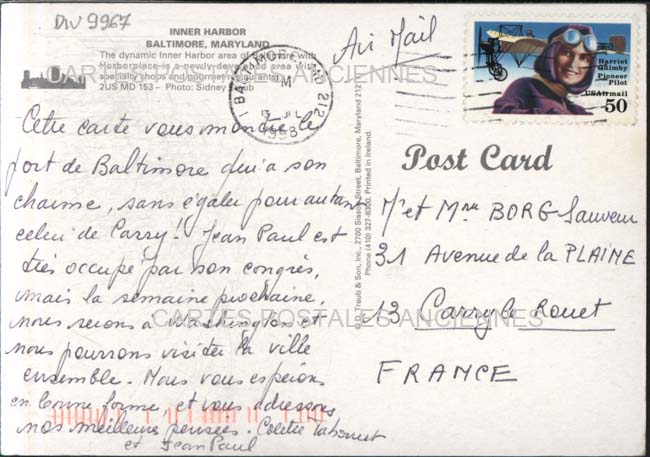 DW 9967
INNER HARBOR
BALTIMORE, MARYLAND
The dynamic Inner Harbor area of Baltimore with
Harborplace is a newly developed area with
specialty shops and gourmet restaurants.
2US MD 153 – Photo: Sidney
CARTES POSTALES ANCIENNES
Air Mail
BALTIMORE MD 212
PM
13 JUL
1998
Harriet
Quimby
Pioneer
Pilot
USAirmail
50
Post Card
Cette carte vous montre le
port de Baltimore qui a son
charme, sans égaler pour autant
celui de Carry! Jean Paul est
très occupé par son congrès,
mais la semaine prochaine,
nous serons à Washington et
nous pourrons visiter la ville
ensemble. Nous vous espérons
en bonne forme, et vous adressons
nos meilleures pensées. Colette
et Jean Paul
© D. Traub & Son, Inc., 2700 Sisson Street, Baltimore, Maryland 212
Phone (410) 327-8300. Printed in Ireland.
Mr et Mme BORG-Sauveur
31 Avenue de la PLAINE
13 Carry le Rouet
CARTES POSTALES ANCIENNES
FRANCE